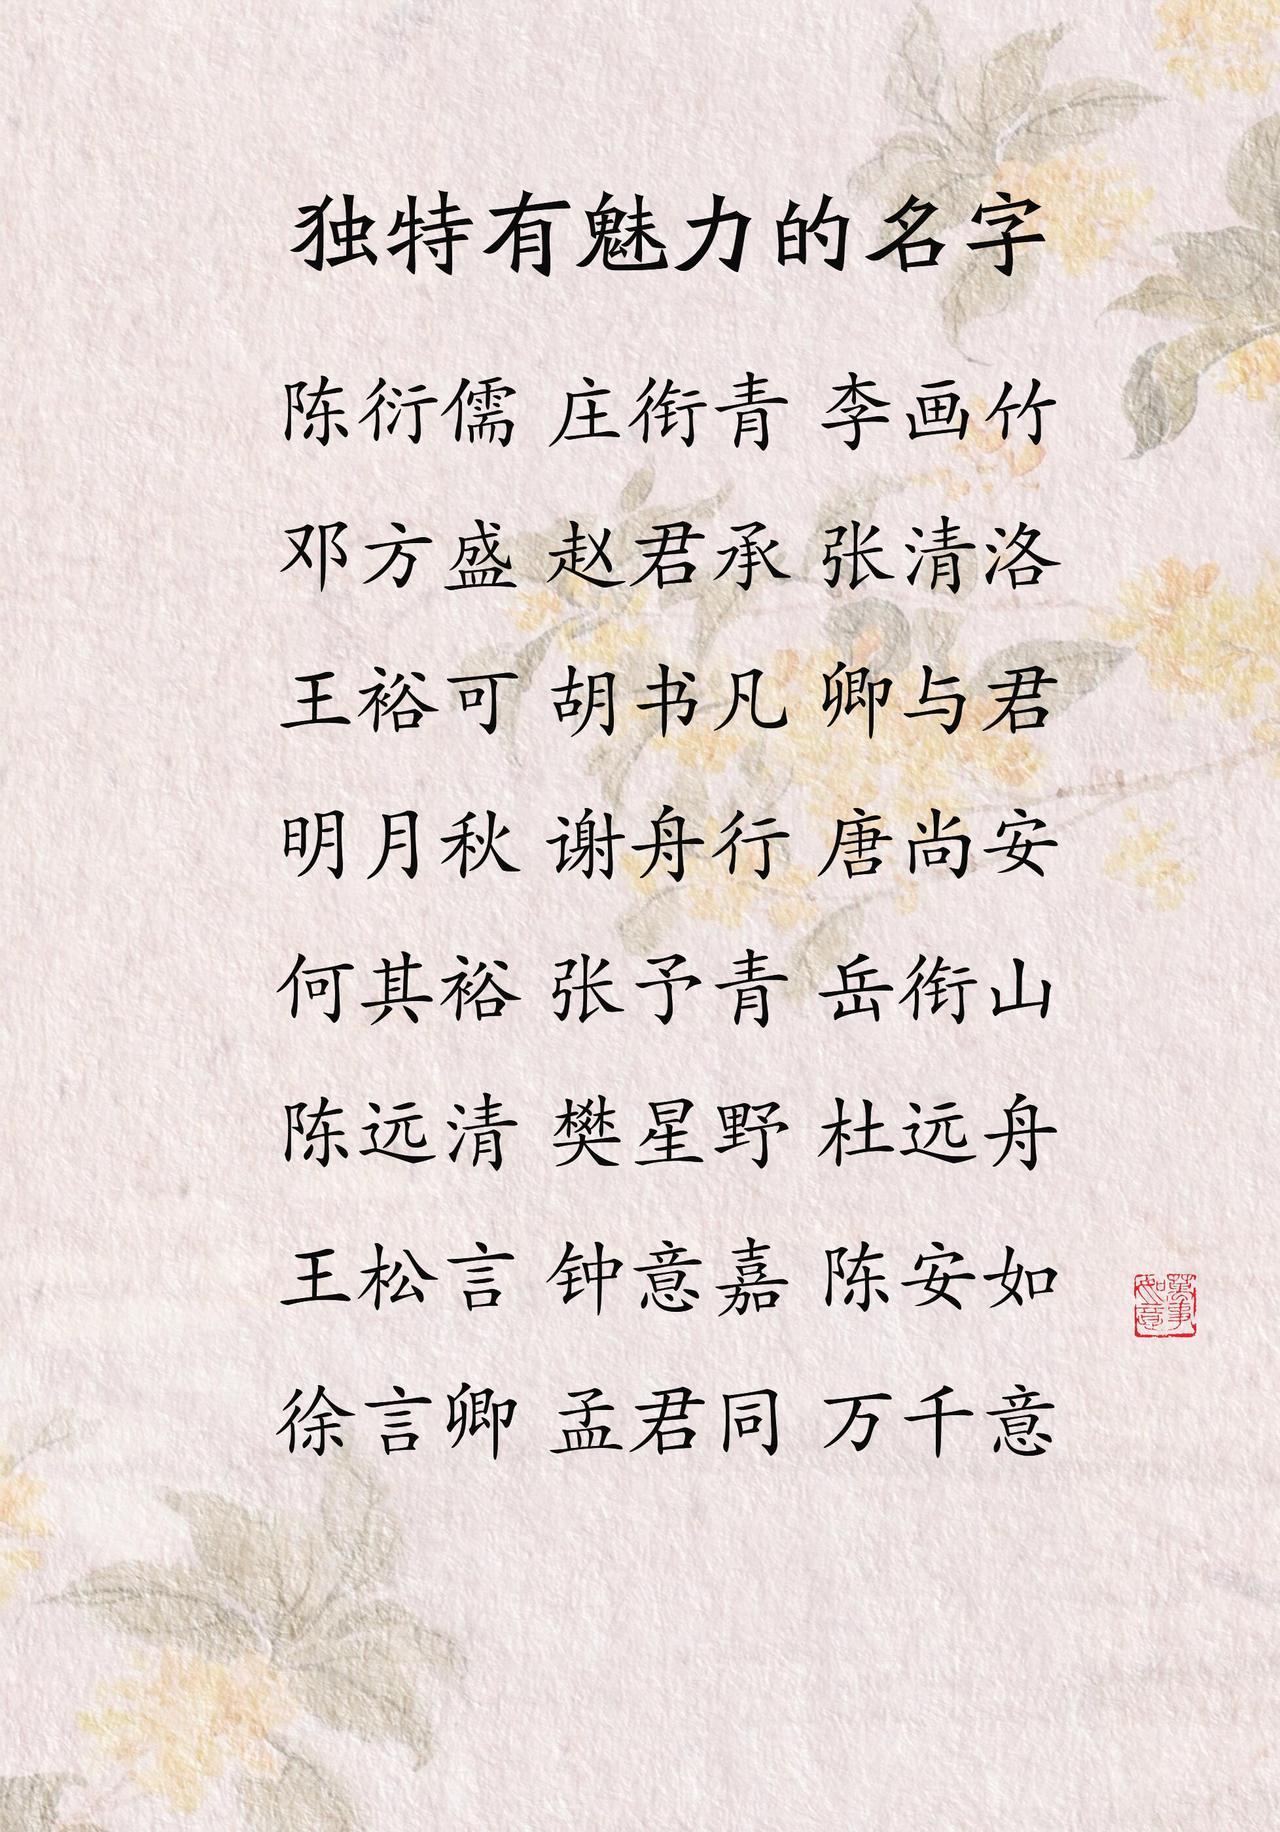 独特有魅力的名字
陈衍儒 庄衔青 李画竹
邓方盛 赵君承 张清洛
王裕可 胡书凡 卿与君
明月秋 谢舟行 唐尚安
何其裕 张予青 岳衔山
陈远清 樊星野 杜远舟
王松言 钟意嘉 陈安如
徐言卿 孟君同 万千意